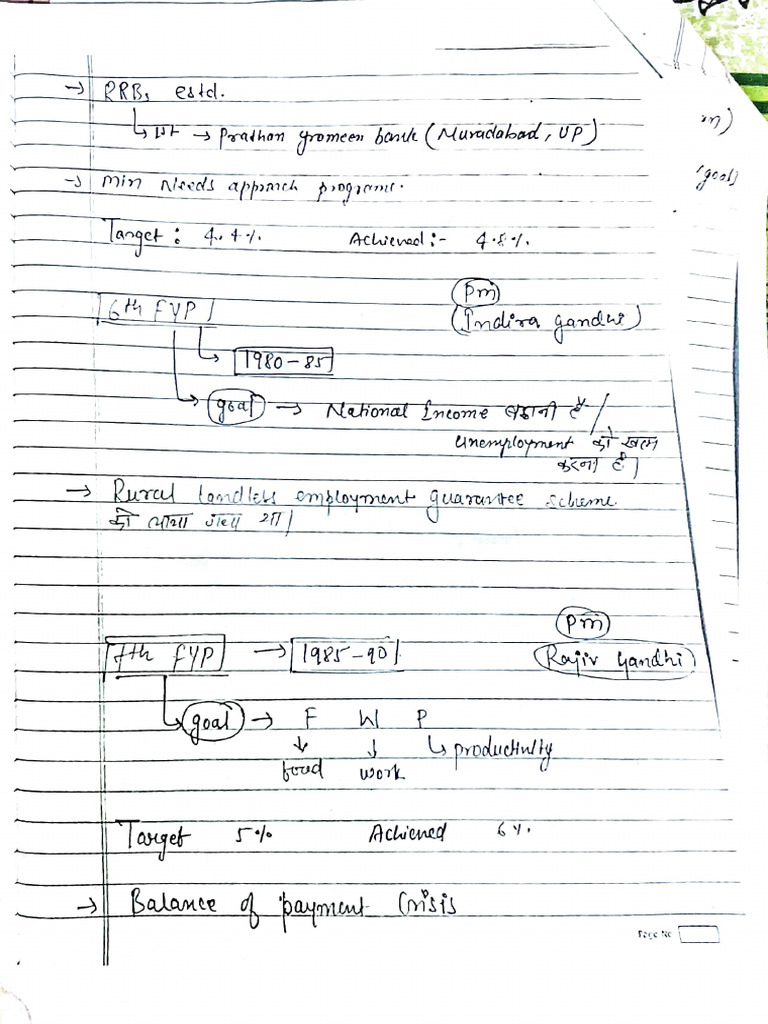 → RRBs estd.
↳ Ist → Prathan grameen bank (Muradabad, UP)
→ Min Needs approach programe.
Target : 4.4% Achieved :- 4.8%.
6th FYP
Pm
(Indira gandhi)
1980-85
goal → National Income बढ़ानी है /
Unemployment को खत्म
करना है |
→ Rural landless employment guarantee scheme
को लाया गया था |
Pm
7th FYP → 1985-90
Rajiv Gandhi
goal → F W P
↳ productivity
food work
Target 5% Achieved 6%.
→ Balance of payment Crisis
Page No